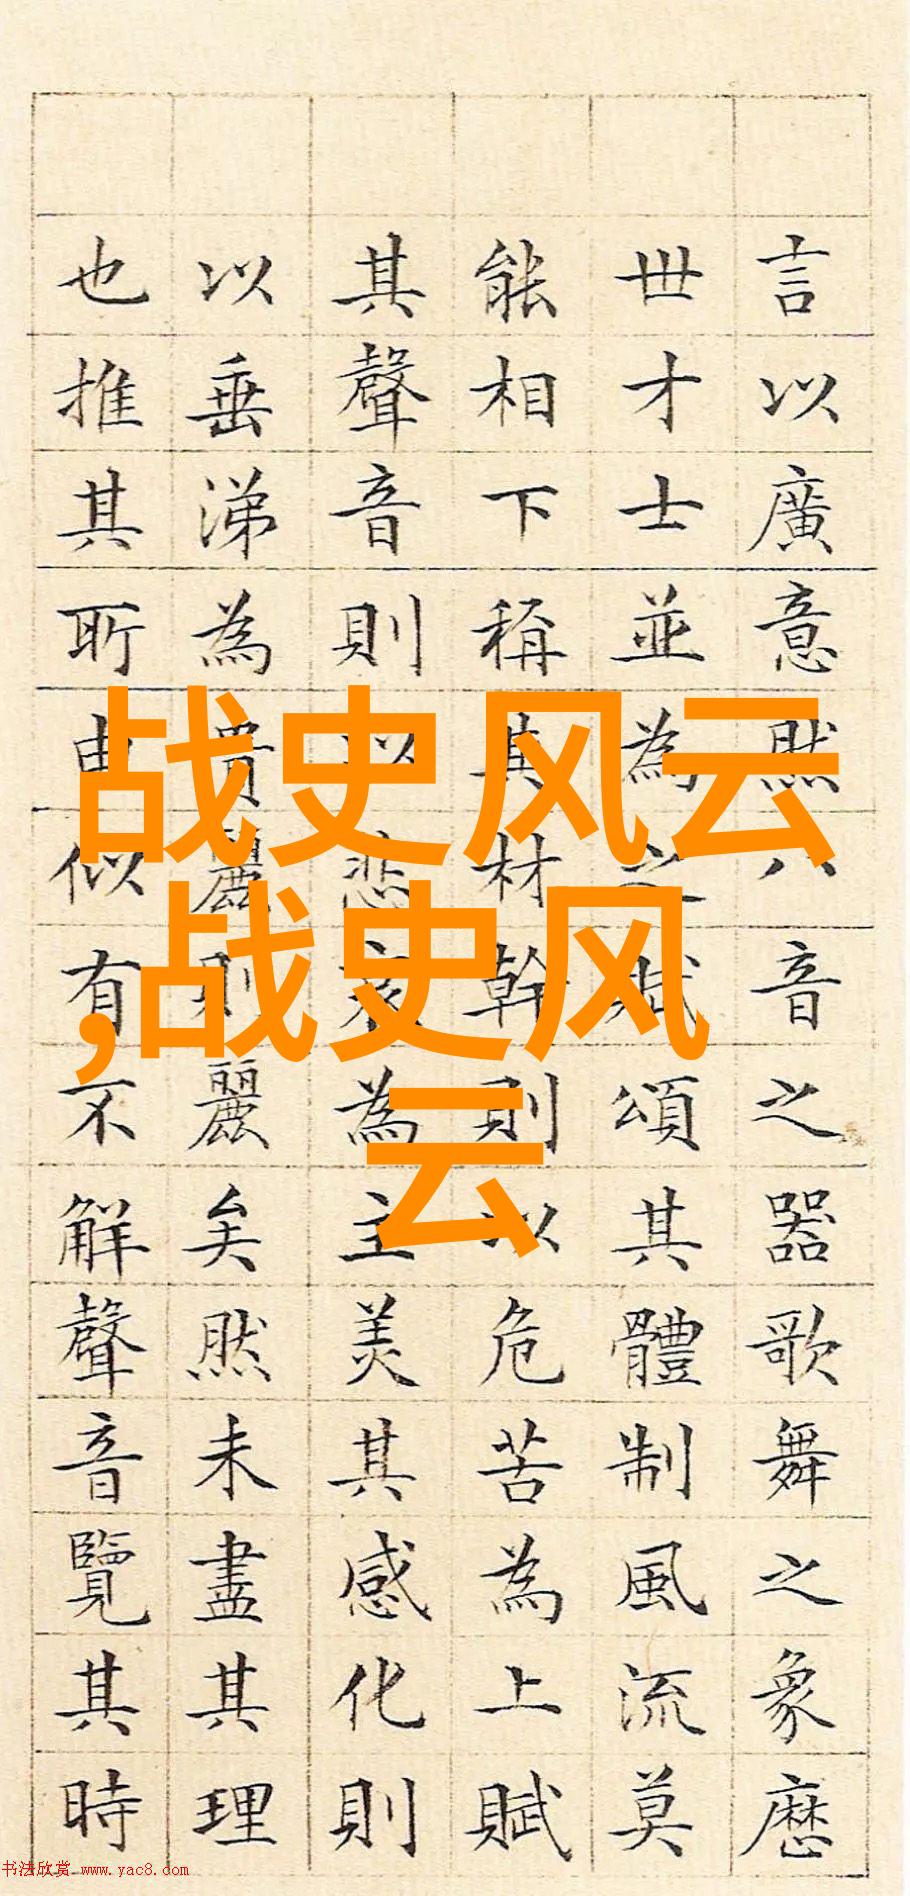 言以廣意然八音之器歌舞之象歷
世才士並為之賦頌其體制風流莫
能相下稱其材幹則以危苦為上賦
其聲音則以悲哀為主美其感化則
以垂涕為貴麗則麗矣然未盡其理
也推其所由似有不解聲音覽其時
战史风云
,战史风
云
书法欣赏 www.yac8.com